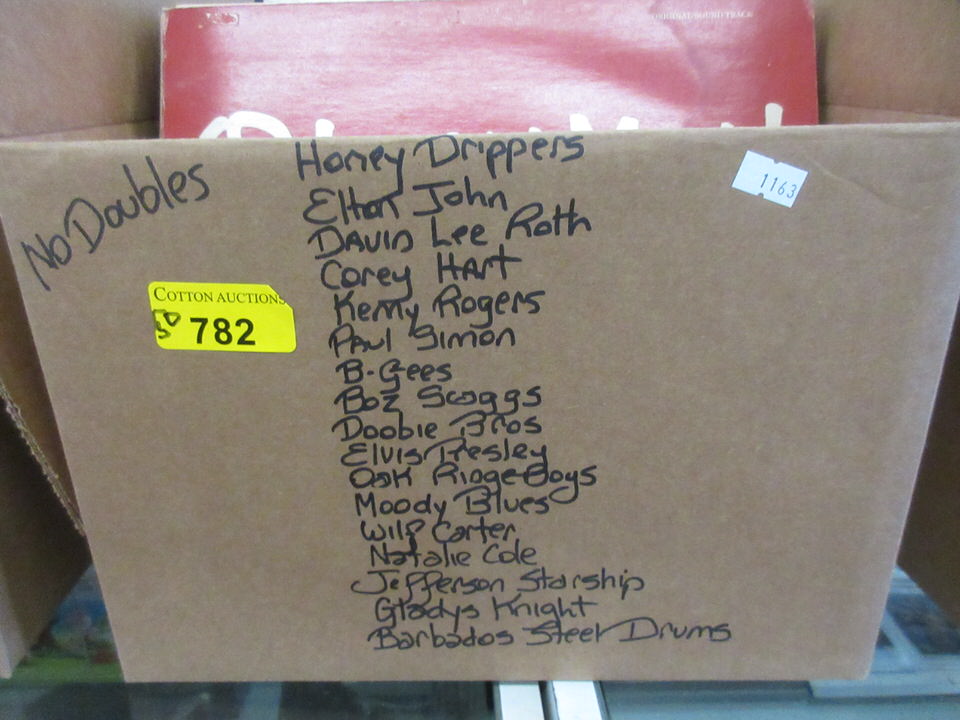 ORIGINAL SOUND TRACK
No Doubles
Honey Drippers
1163
Elton John
DAVID Lee Roth
Corey HArt
COTTON AUCTIONS
50 782
Kenny Rogers
PAUL Simon
B-Gees
Boz Scaggs
Doobie Bros
Elvis Presley
Oak Ridge Boys
Moody Blues
Wilf Carter
Natalie Cole
Jefferson Starship
Gladys Knight
Barbados Steel Drums